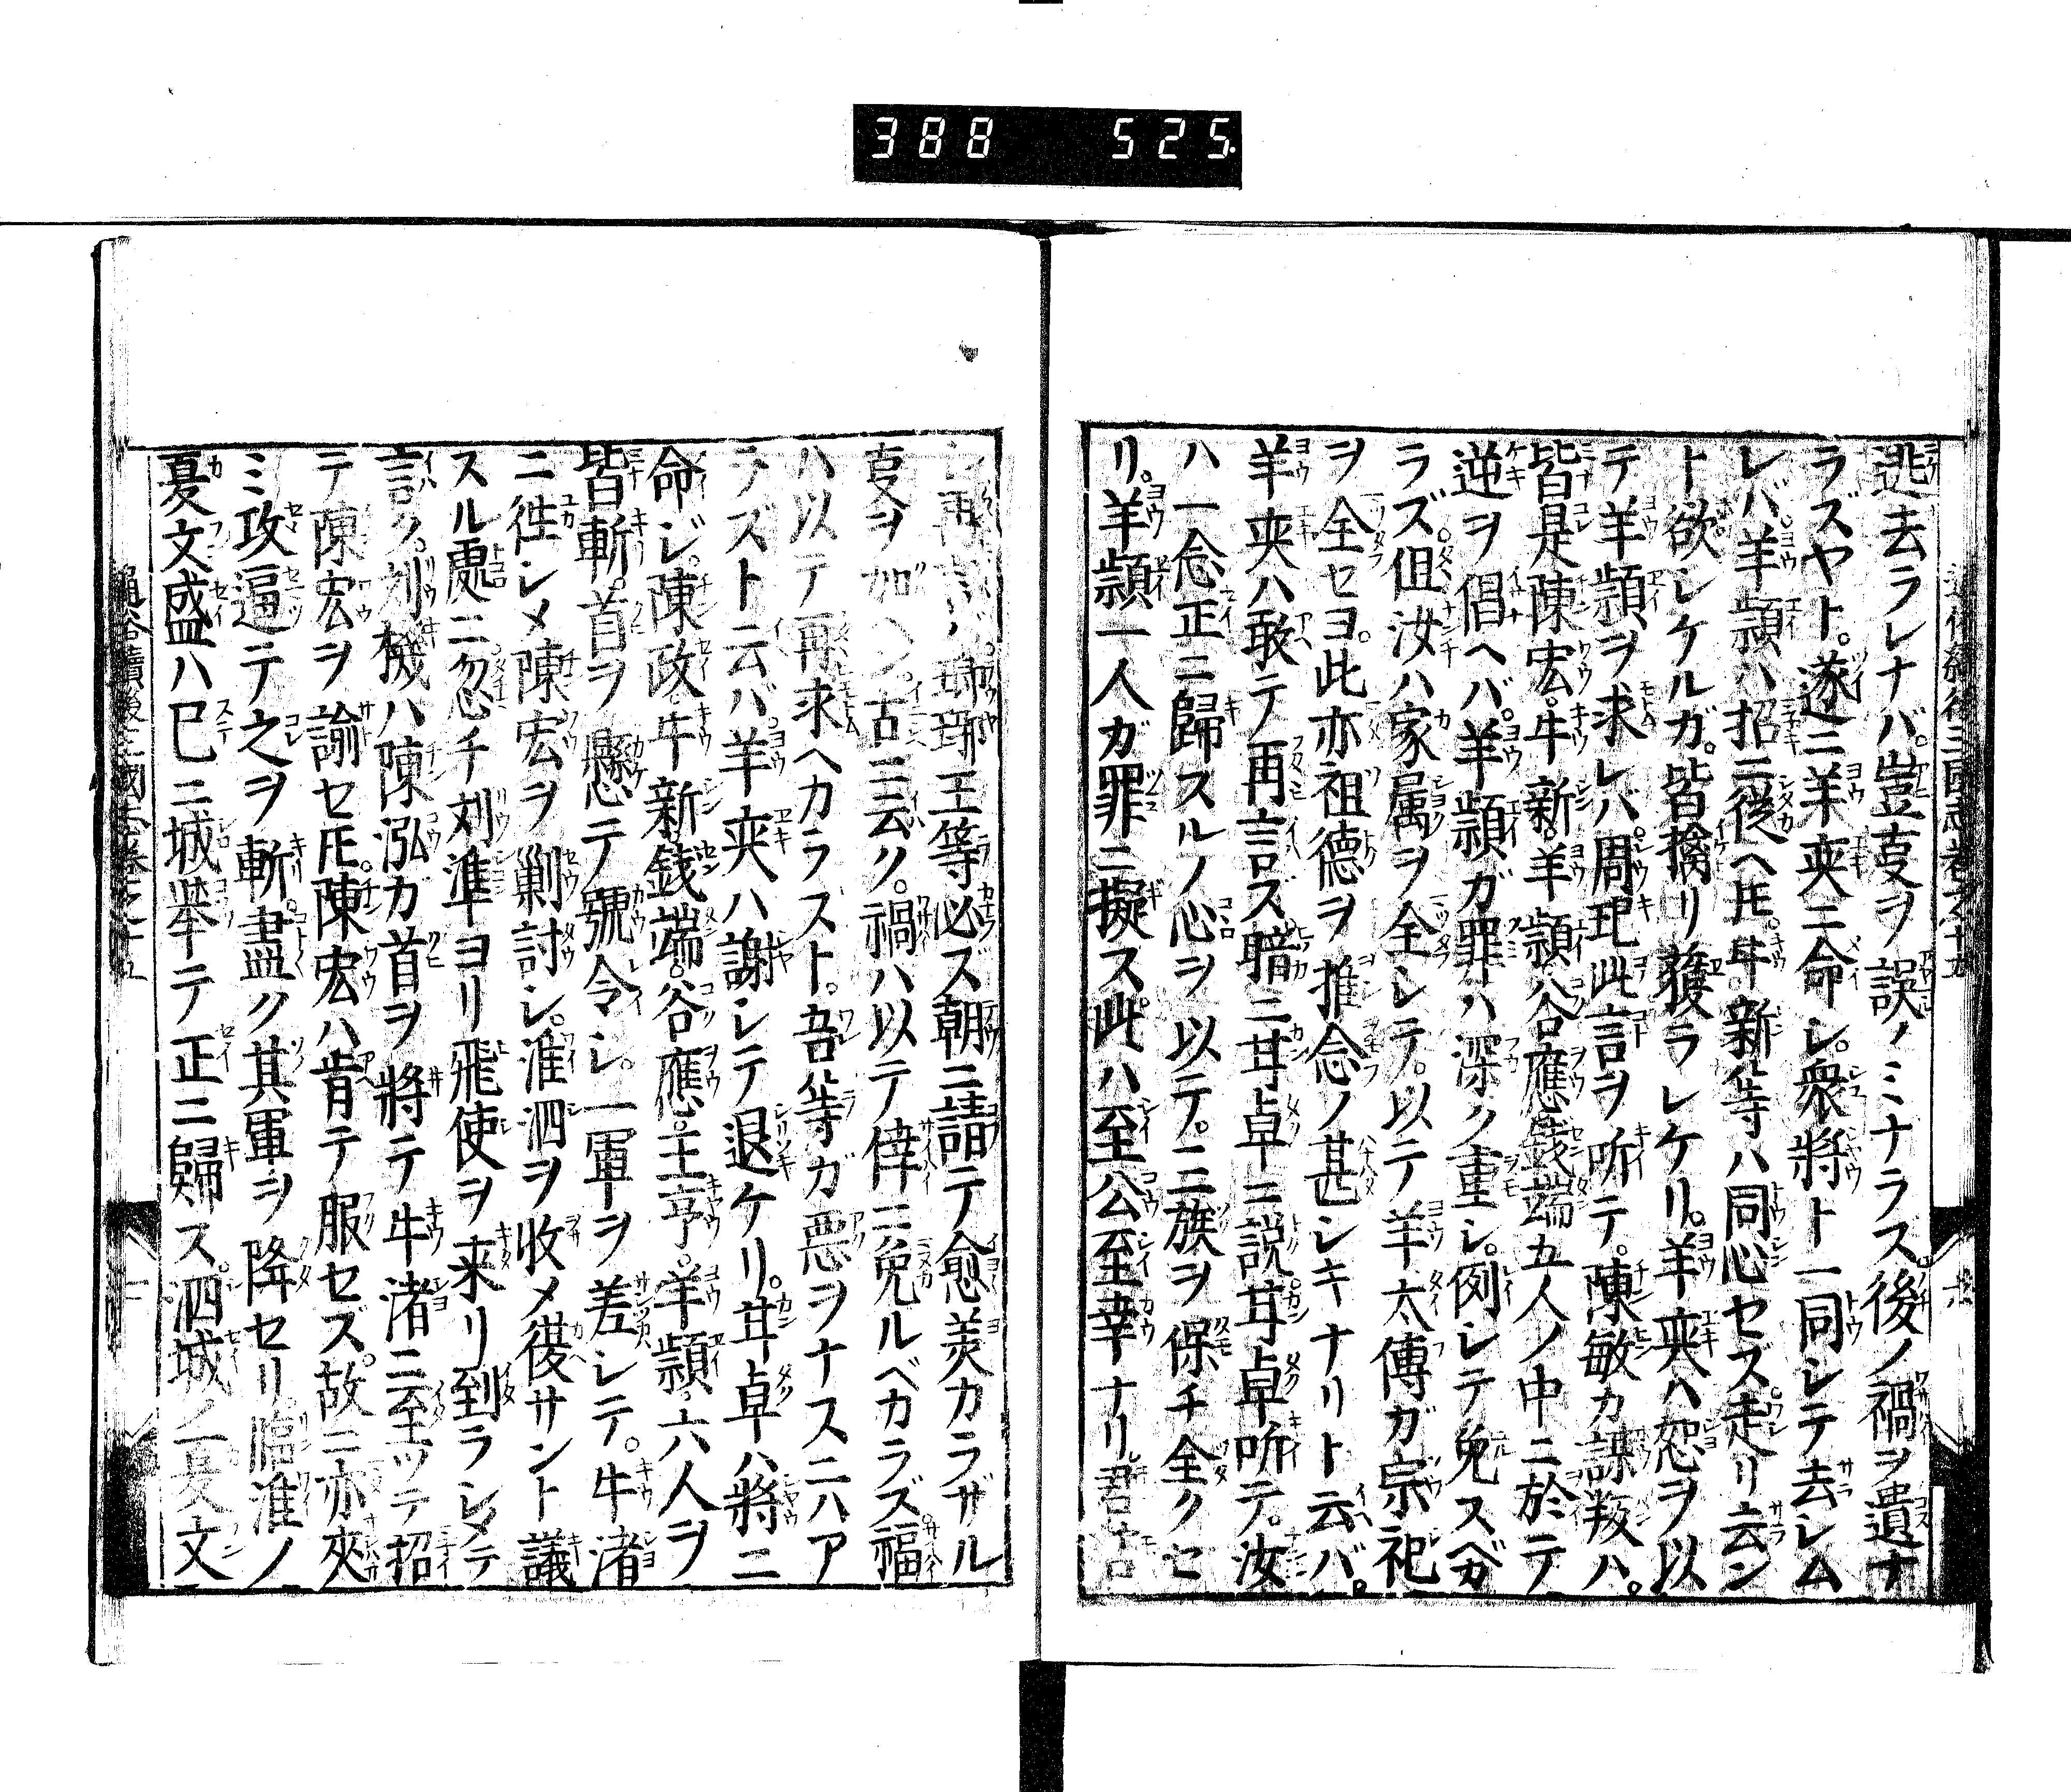 388 525.
逃去ラレナバ。豈叓ヲ誤ノミナラズ。後ノ禍ヲ遺ナ
ラズヤト。遂ニ羊夾ニ命レ。衆將ト一同シテ去レム
レバ。羊頴ハ招ニ從ヘ𪜈。牛新等ハ同心セズ。走リ去ン
ト欲レケルガ。皆擒リ獲ラレケリ。羊夾ハ恕ヲ以
テ羊頴ヲ求レバ。周玘此言ヲ听テ。陳敏カ謀叛ハ。
皆是陳宏。牛新。羊頴。谷應。錢端五人ノ中ニ於テ
逆ヲ倡ヘバ。羊頴ガ罪ハ深ク重シ。例レテ免スベガ
ラズ。但汝ハ家属ヲ全レテ。以テ羊太傅ガ宗祀
ヲ全セヨ。此亦祖德ヲ推念ノ甚シキナリト云バ。
羊夾ハ敢テ再言ズ。暗ニ甘卓ニ説。甘卓听テ。汝
ハ一念正ニ歸スルノ心ヲ以テ。三族ヲ保チ全クセ
リ。羊頴一人ガ罪ニ擬ス。此ハ至公至幸ナリ。君
王等必ズ朝ニ請テ愈羙カラザル
叓ヲ加ヘン。古ニ云ク。禍ハ以テ倖ニ免ルベカラズ。福
ハ以テ再求ヘカラスト。吾等ガ悪ヲナスニハア
ラズト云バ。羊夾ハ謝レテ退ケリ。甘卓ハ將ニ
命ジ。陳政。牛新。錢端。谷應。王亨。羊頴。六人ヲ
皆斬。首ヲ懸テ號令シ。一軍ヲ差レテ。牛渚
ニ徃レメ陳宏ヲ剿討シ。淮泗ヲ收メ復サント議
スル處ニ忽チ刘準ヨリ飛使ヲ来リ到ラレメテ
言ク。刘機ハ陳泓ガ首ヲ將テ牛渚ニ至ツテ招
テ陳宏ヲ諭セ𪜈。陳宏ハ肯テ服セズ。故ニ亦夾
ミ攻逼テ之ヲ斬。盡ク其軍ヲ降セリ。臨淮ノ
夏文盛ハ已ニ城挙テ正ニ歸ス。泗城ノ夏文